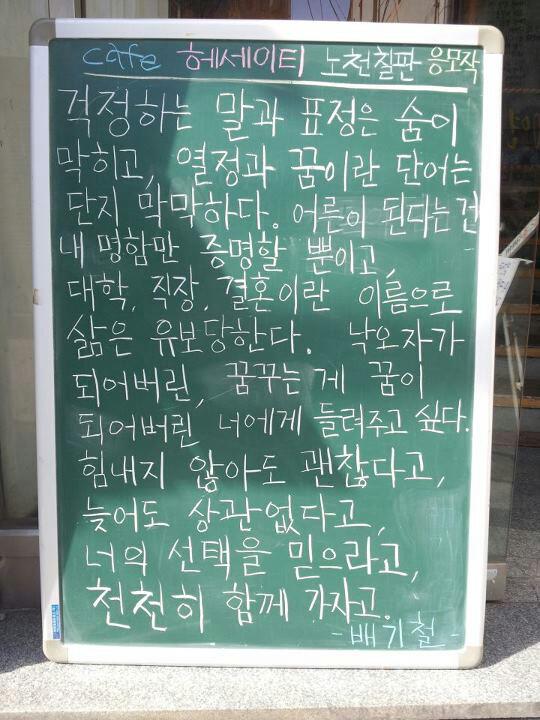 cafe 헤세이티 노천칠판 응모작
걱정하는 말과 표정은 숨이
막히고, 열정과 꿈이란 단어는
단지 막막하다. 어른이 된다는 건
내 명함만 증명할 뿐이고,
대학, 직장, 결혼이란 이름으로
삶은 유보당한다. 낙오자가
되어버린, 꿈꾸는 게 꿈이
되어버린, 너에게 들려주고 싶다.
힘내지 않아도 괜찮다고,
늦어도 상관없다고,
너의 선택을 믿으라고,
천천히 함께 가자고.
-배기철-